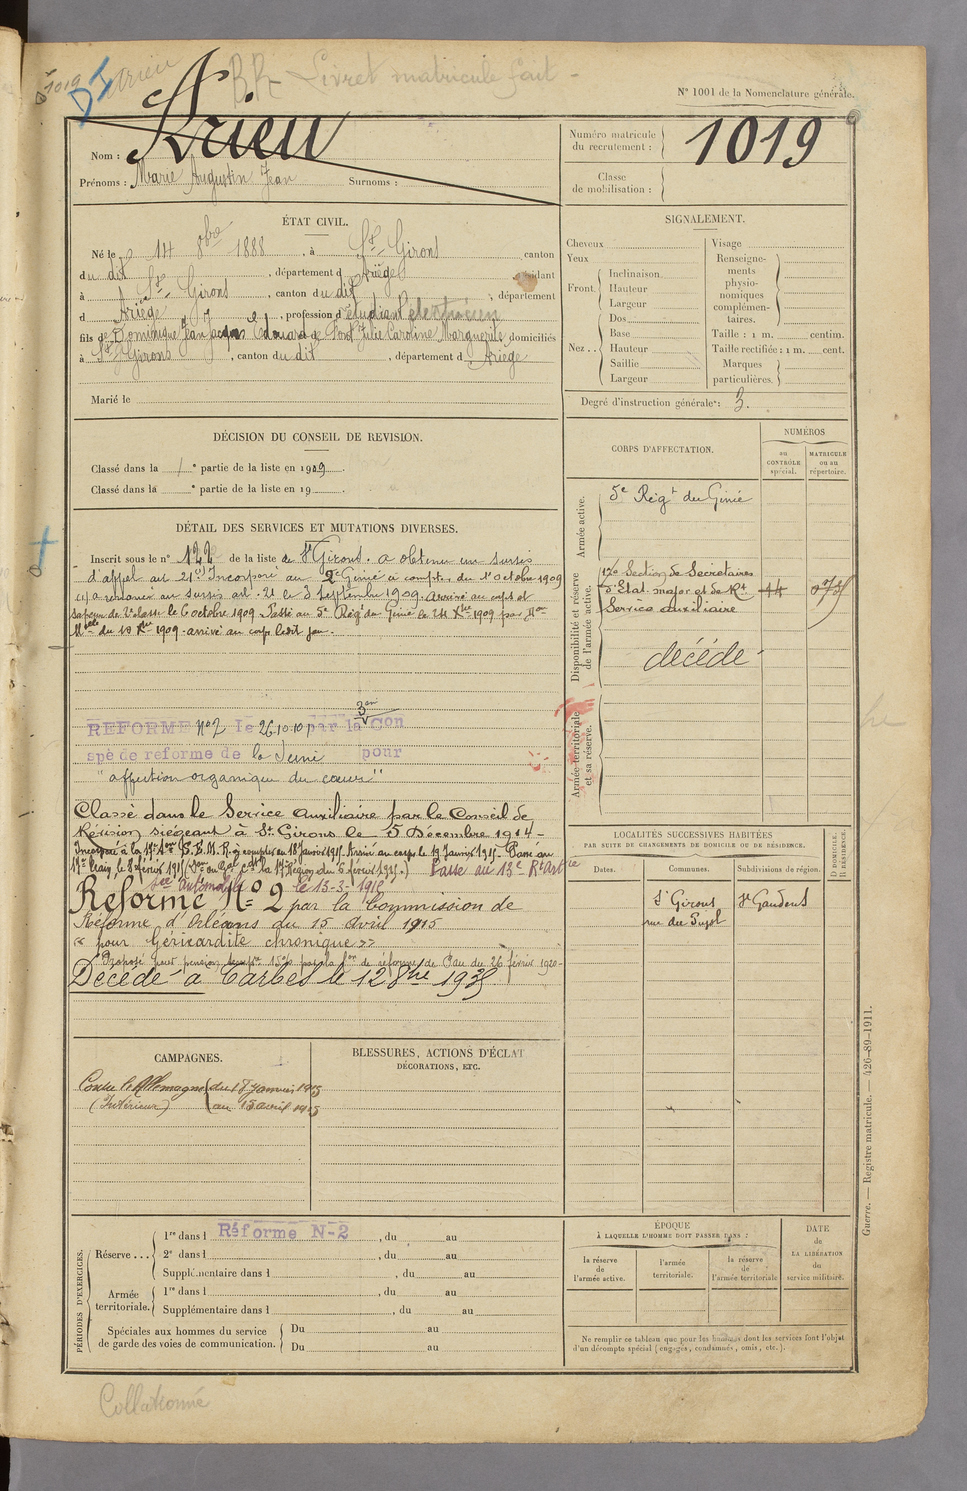 1019
Arieu
RR Livret matricule fait -
N° 1001 de la Nomenclature générale.
Nom : Arieu
Prénoms : Marie Augustin Jean Surnoms :
Numéro matricule du recrutement : 1019
Classe de mobilisation :
ÉTAT CIVIL.
Né le 14 8bre 1888, à St Girons canton
du dit, département d Ariège, résidant
à St Girons, canton du dit, département
d Ariège, profession d étudiant électricien
fils de Dominique Jean Jacques Edouard et de Pont Julie Caroline Marguerite, domiciliés
à St Girons, canton du dit, département d Ariège
Marié le
SIGNALEMENT.
Cheveux
Yeux
Front.
Inclinaison
Hauteur
Largeur
Nez ..
Dos
Base
Hauteur
Saillie
Largeur
Visage
Renseignements physionomiques complémentaires.
Taille : 1 m. centim.
Taille rectifiée : 1 m. cent.
Marques particulières.
Degré d'instruction générale : 3.
DÉCISION DU CONSEIL DE REVISION.
Classé dans la 1e partie de la liste en 1909.
Classé dans la e partie de la liste en 19 .
CORPS D'AFFECTATION.
NUMÉROS
au CONTRÔLE spécial.
MATRICULE ou au répertoire.
Armée active.
5e Régt du Génie
Disponibilité et réserve de l'armée active.
12e Section de Secrétaires
d'Etat major et de Rt
Service auxiliaire
44
décédé
Armée territoriale et sa réserve.
DÉTAIL DES SERVICES ET MUTATIONS DIVERSES.
Inscrit sous le n° 122 de la liste de St Girons. a obtenu un sursis
d'appel art 21. Incorporé au 2e Génie à compter du 1er octobre 1909
a renoncé au sursis art. 21 le 3 septembre 1909. Arrivé au corps et
sapeur de 2e classe le 6 octobre 1909. Passé au 5e Régt du Génie le 24 Xbre 1909 par Don
Mlle du 10 Xbre 1909. arrivé au corps ledit jour.
REFORME N°2 le 26.10.10 par la 3e Con
spé de réforme de la Seine pour
"affection organique du cœur"
Classé dans le Service Auxiliaire par le Conseil de
Révision siégeant à St Girons le 5 Décembre 1914 -
Passé au 13e Rt Art
le 13-3-1915
Réformé N° 2 par la Commission de
Réforme d'Orléans du 15 Avril 1915
« pour Péricardite chronique »
Décédé à Tarbes le 12 8bre 1935
LOCALITÉS SUCCESSIVES HABITÉES
PAR SUITE DE CHANGEMENTS DE DOMICILE OU DE RÉSIDENCE.
Dates.
Communes.
Subdivisions de région.
D DOMICILE. R RÉSIDENCE.
St Girons St Gaudens
rue du Pujol
CAMPAGNES.
Contre l'Allemagne du 18 janvier 1915
(Intérieur) au 15 avril 1915
BLESSURES, ACTIONS D'ÉCLAT
DÉCORATIONS, ETC.
PÉRIODES D'EXERCICES.
Réserve ...
1re dans l Réforme N-2, du au
2e dans l , du au
Supplémentaire dans l , du au
Armée territoriale.
1re dans l , du au
Supplémentaire dans l , du au
Spéciales aux hommes du service de garde des voies de communication.
Du au
Du au
ÉPOQUE
À LAQUELLE L'HOMME DOIT PASSER DANS :
la réserve de l'armée active.
l'armée territoriale.
la réserve de l'armée territoriale
DATE de LA LIBÉRATION du service militaire.
Ne remplir ce tableau que pour les hommes dont les services font l'objet
d'un décompte spécial (engagés, condamnés, omis, etc.).
Guerre. — Registre matricule. — 426-89-1911.
Collationné